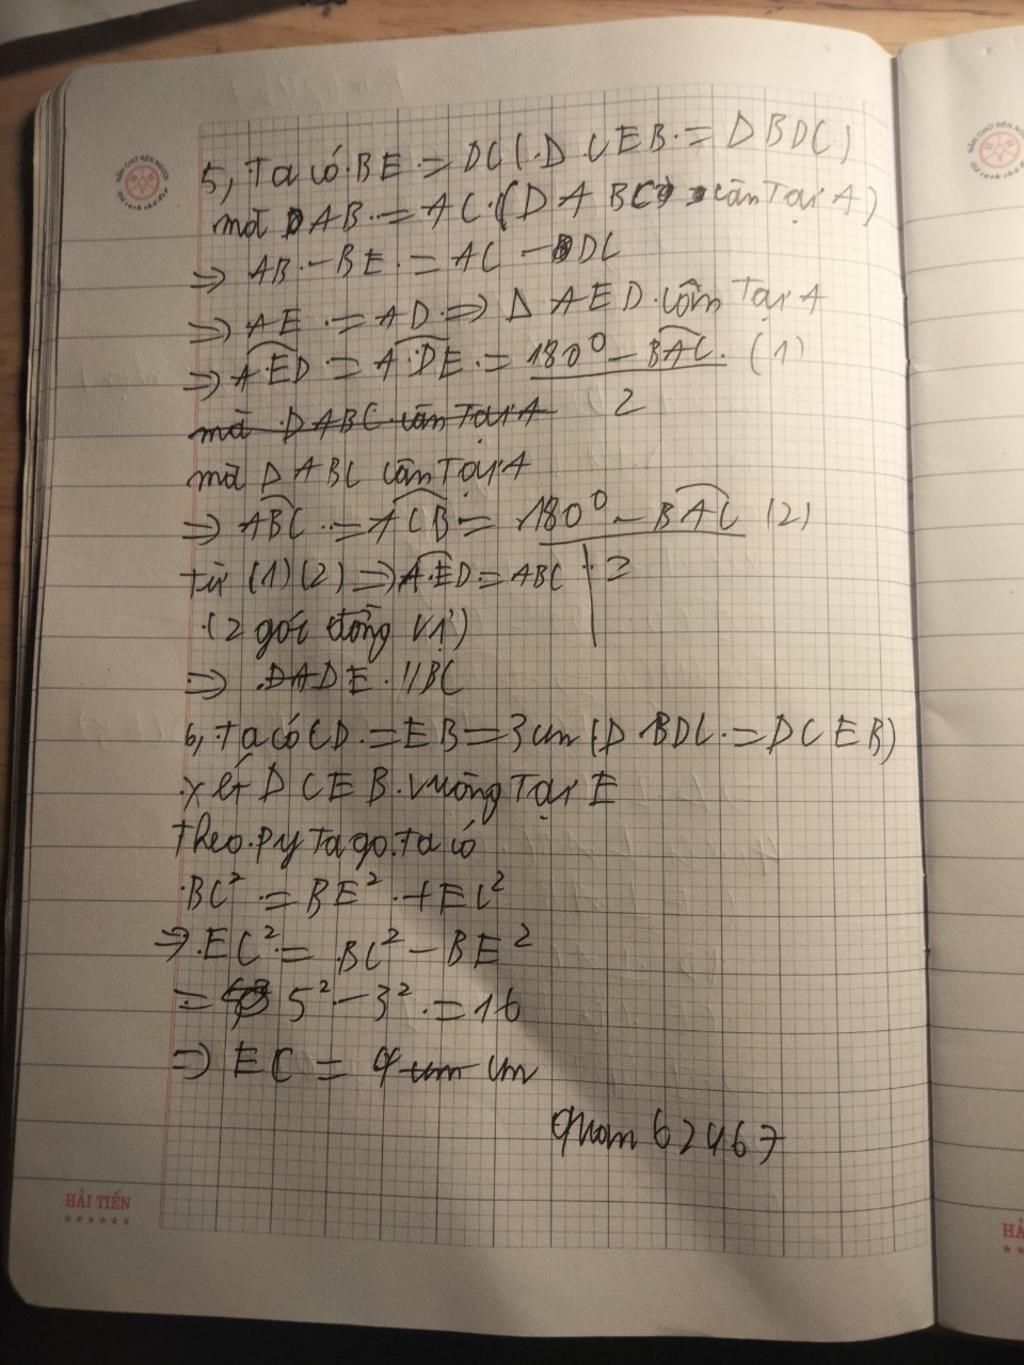 5, Ta có BE = DC (Δ CEB = Δ BDC)
mà AB = AC (Δ ABC cân Tại A)
=> AB - BE = AC - DC
=> AE = AD => Δ AED cân Tại A
=> AED = ADE = 180° - BAC (1)
2
mà Δ ABC cân Tại A
mà Δ ABC cân Tại A
=> ABC = ACB = 180° - BAC (2)
Từ (1)(2) => AED = ABC 2
(2 góc đồng vị)
=> DADE // BC
6, Ta có CD = EB = 3 cm (Δ BDC = Δ CEB)
xét Δ CEB vuông Tại E
Theo pyTago ta có
BC² = BE² + EC²
=> EC² = BC² - BE²
= 5² - 3² = 16
=> EC = 4 cm cm
quan 62467
HẢI TIẾN
HẢ